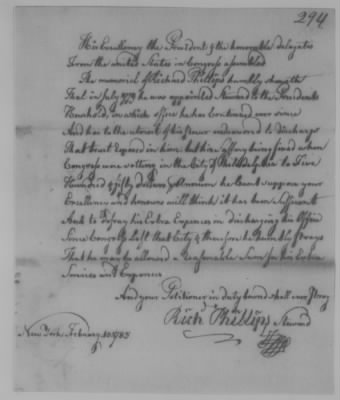 294
His Excellency the President & the honorable delegates
from the united States in Congress assembled
The memorial of Richard Phillips humbly sheweth
That in July he was appointed Steward to the Presidents
Houshold, in which office he has Continued ever since
And has to the utmost of his power endeavored to discharge
that trust reposed in him, but his Sallary being fixed when
Congress were sitting in the City of Philadelphia to Five
Hundred & fifty dollars Annum he Cannot suppose your
Excellency and honours will think it has been Sufficient
And to Defray his Extra Expences in discharging his Office
Since Congress left that City & therefore he humbly prays
That he may be allowed a Reasonable Sum for his Extra
Services and Expences
And your Petitioner in duty bound shall ever Pray
Richd Phillips Steward
New York February 10 1785